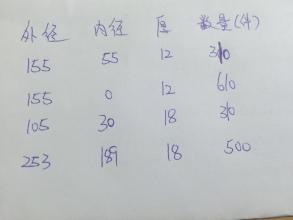 外径 内径 厚 数量(件)
155 55 12 310
155 0 12 610
105 30 18 310
253 189 18 500